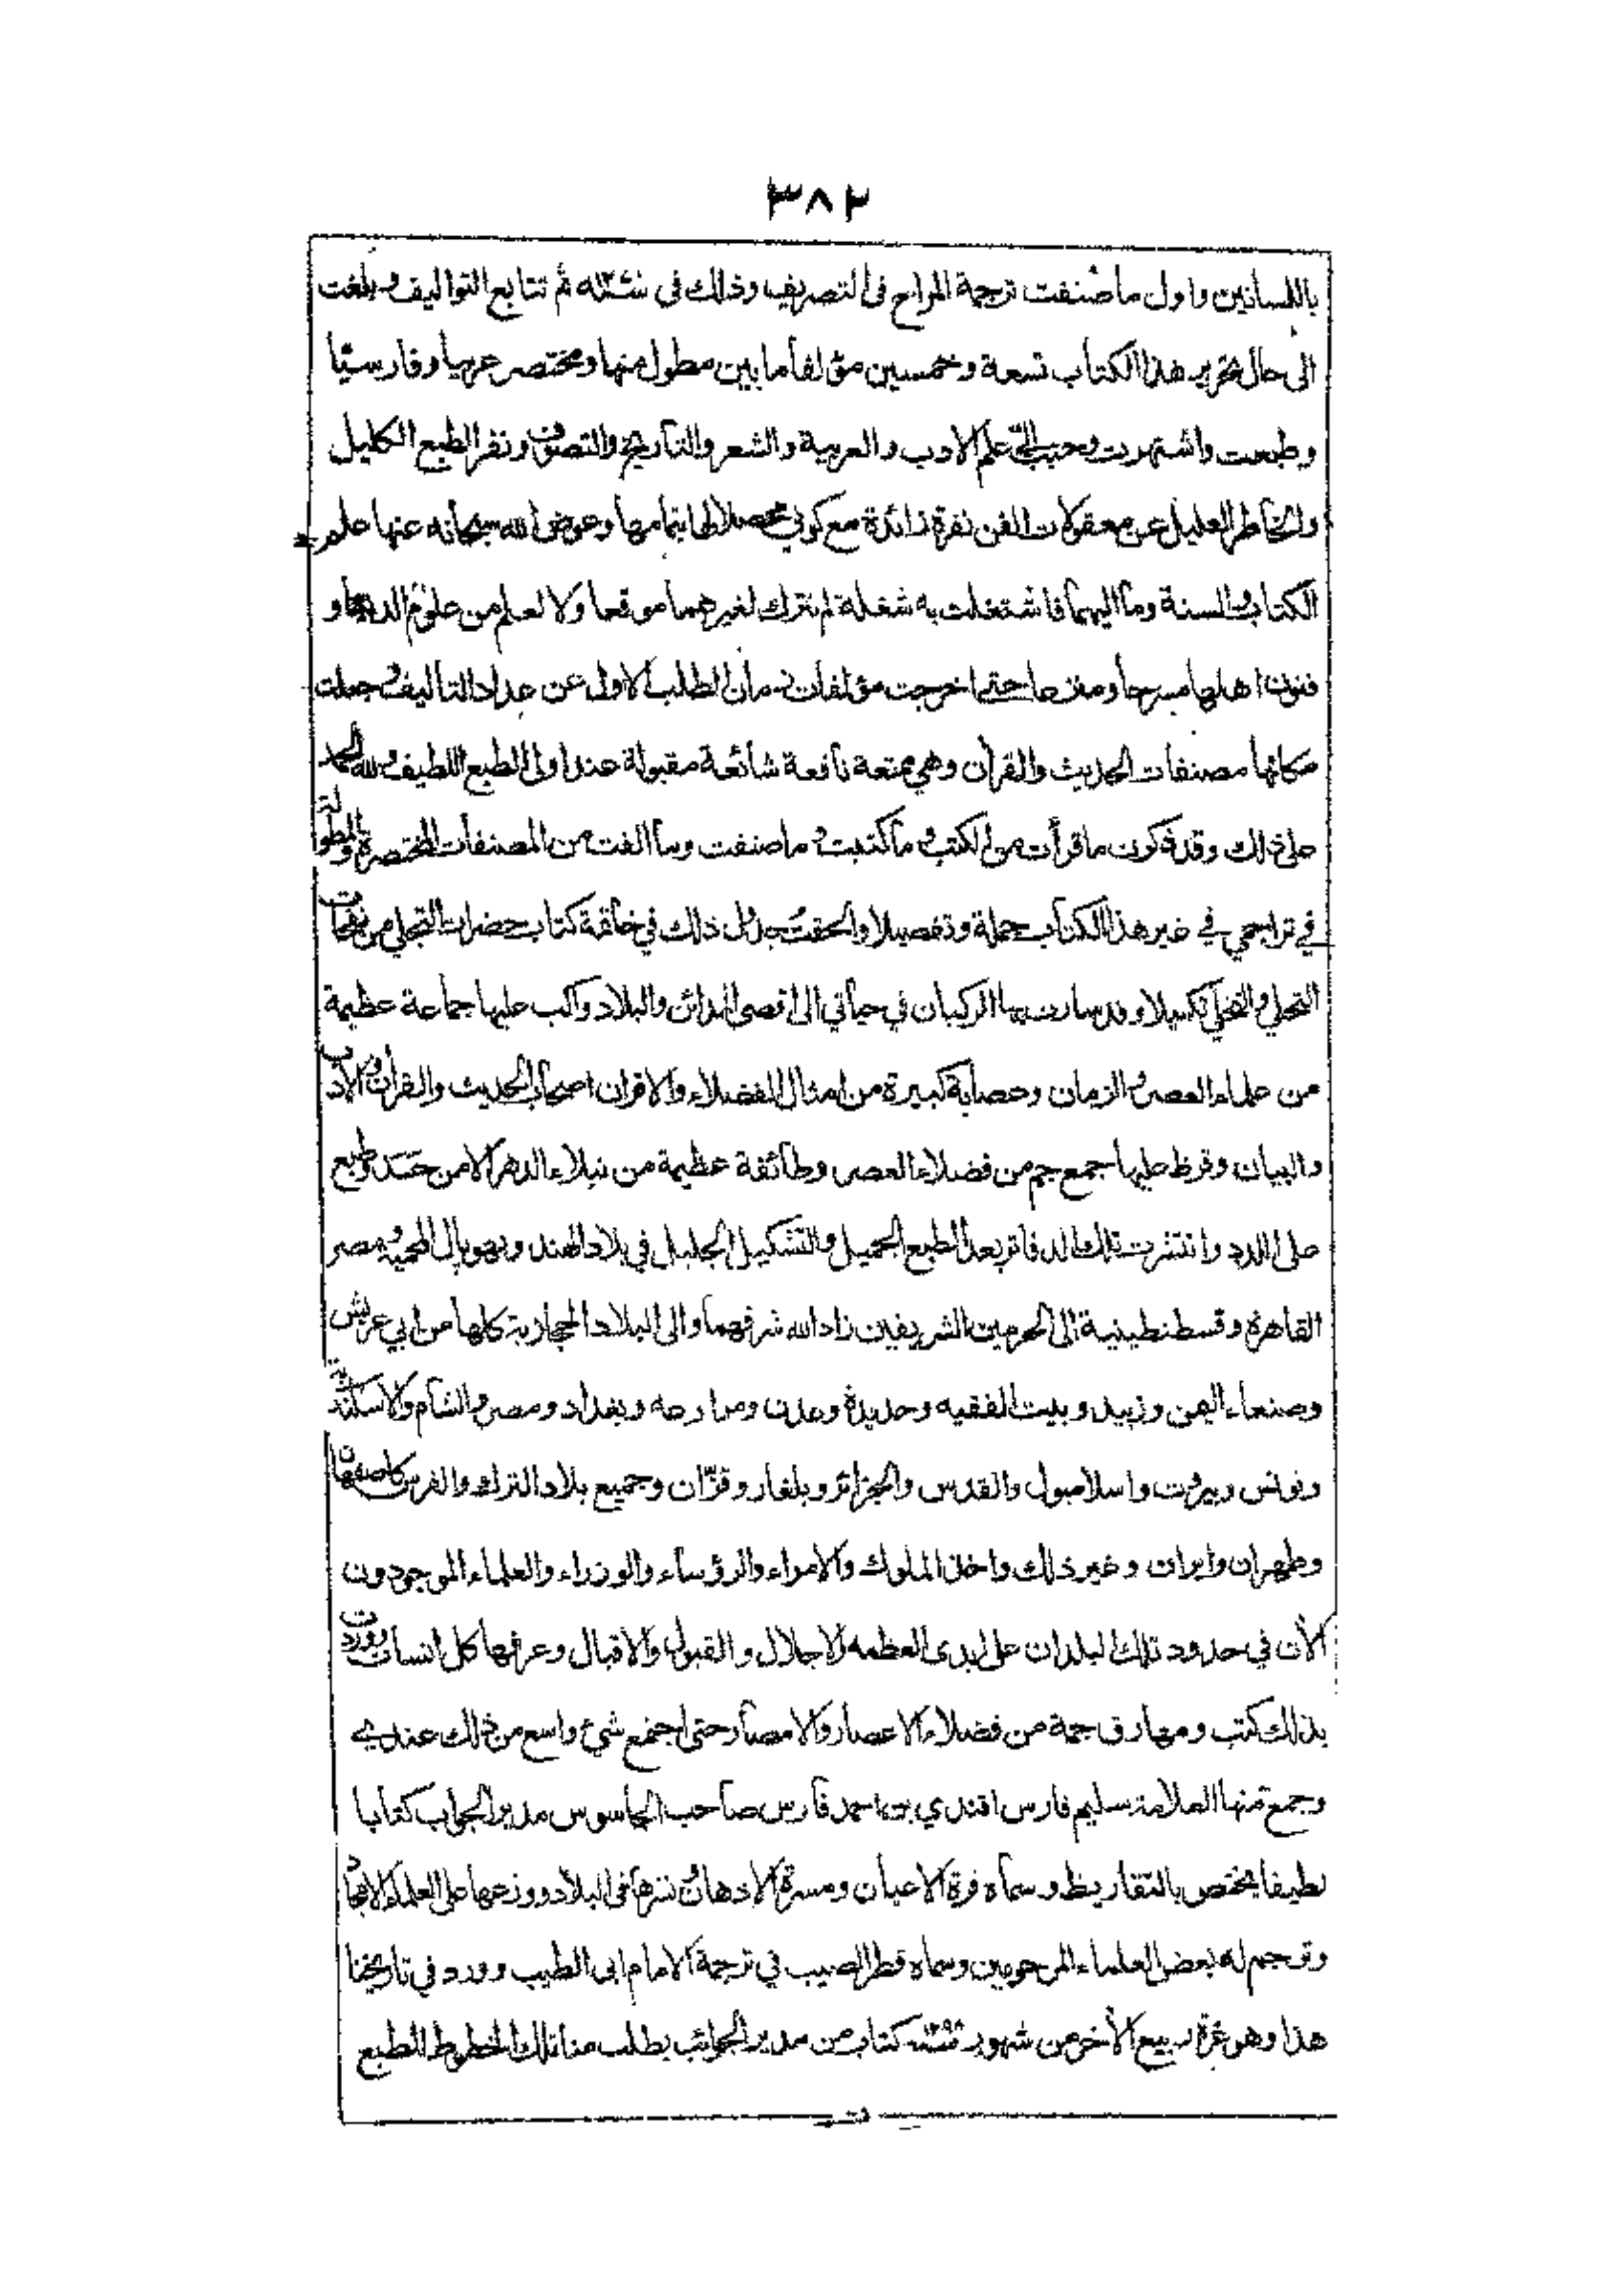 ٣٨٢
باللسانين واول ما صنفت ترجمة المراح فى التصريف وذلك فى سنة ثم تتابع التواليف وبلغت
الى حال تحرير هذا الكتاب تسعة وخمسين مؤلفا ما بين مطول منها ومختصر عربيا وفارسيًا
وطبعت واشتهرت وحبب الىّ علم الادب والعربية والشعر والتأريخ والتصوف ونفر الطبع الكليل
والخاطر العليل عن معقولات الفن نفرة زائدة مع كوني محصلا لها بتمامها وعوض الله سبحانه عنها علم
الكتاب والسنة وما اليهما فاشتغلت به شغلة لم تترك لغيرهما موقعا ولا لعلم من علوم الدنيا و
فنون اهلها مسرحا ومنزعا حتى اخرجت مؤلفات زمان الطلب الاول عن عداد التأليف وجعلت
مكانها مصنفات الحديث والقرأن وهي ممتعة نافعة شائعة مقبولة عند اولى الطبع اللطيف ولله الحمد
على ذلك وقد ذكرت ما قرأت من الكتب وما كتبت وما صنفت وما الفت من المصنفات المختصرة والمطولة
في تراجمي في غير هذا الكتاب جملة وتفصيلا والحقت جل ذلك في خاتمة كتاب حضرات التجلي من نفحات
التحلي والتخلي تكميلا وقد سارت بها الركبان في حياتي الى اقصى المدائن والبلاد واكب عليها جماعة عظيمة
من علماء العصر والزمان وعصابة كبيرة من امثال الفضلاء والاقران اصحاب الحديث والقرأن والادب
والبيان وقرظ عليها جمع جم من فضلاء العصر وطائفة عظيمة من نبلاء الدهر الا من حسد وطبع
على اللدد وانتشرت تلك الدفاتر بعد الطبع الجميل والتشكيل الجليل في بلاد الهند وبهوپال المحمية ومصر
القاهرة وقسطنطينية الى الحرمين الشريفين زاد الله شرفهما والى البلاد الحجازية كلها من ابي عريش
وصنعاء اليمن وزبيد وبيت الفقيه وحديدة وعدن ومراوعه وبغداد ومصر والشام والاسكندرية
وتونس وبيروت واسلامبول والقدس والجزائر وبلغار وقزّان وجميع بلاد الترك والفرس كاصفهان
وطهران وايران وغير ذلك واخذ الملوك والامراء والرؤساء والوزراء والعلماء الموجودون
الأن في حدود تلك البلدان على ايدى العظمه والاجلال والقبول والاقبال وعرفها كل انسان ووردت
بذلك كتب ومهارق جمة من فضلاء الاعصار والامصار حتى اجتمع شئ واسع من ذلك عندي
وجمع منها العلامة سليم فارس افندي بن احمد فارس صاحب الجاسوس مدير الجوائب كتابا
لطيفا يختص بالتقاريظ وسماه قرة الاعيان ومسرة الاذهان نشرها فى البلاد ووزعها على العلماء الامجاد
وترجم له بعض العلماء المرحومين وسماه قطر الصيب في ترجمة الامام ابى الطيب وورد في تاريخنا
هذا وهو غرة ربيع الأخر من شهور سنة كتاب من مدير الجوائب يطلب منا تلك الخطوط للطبع